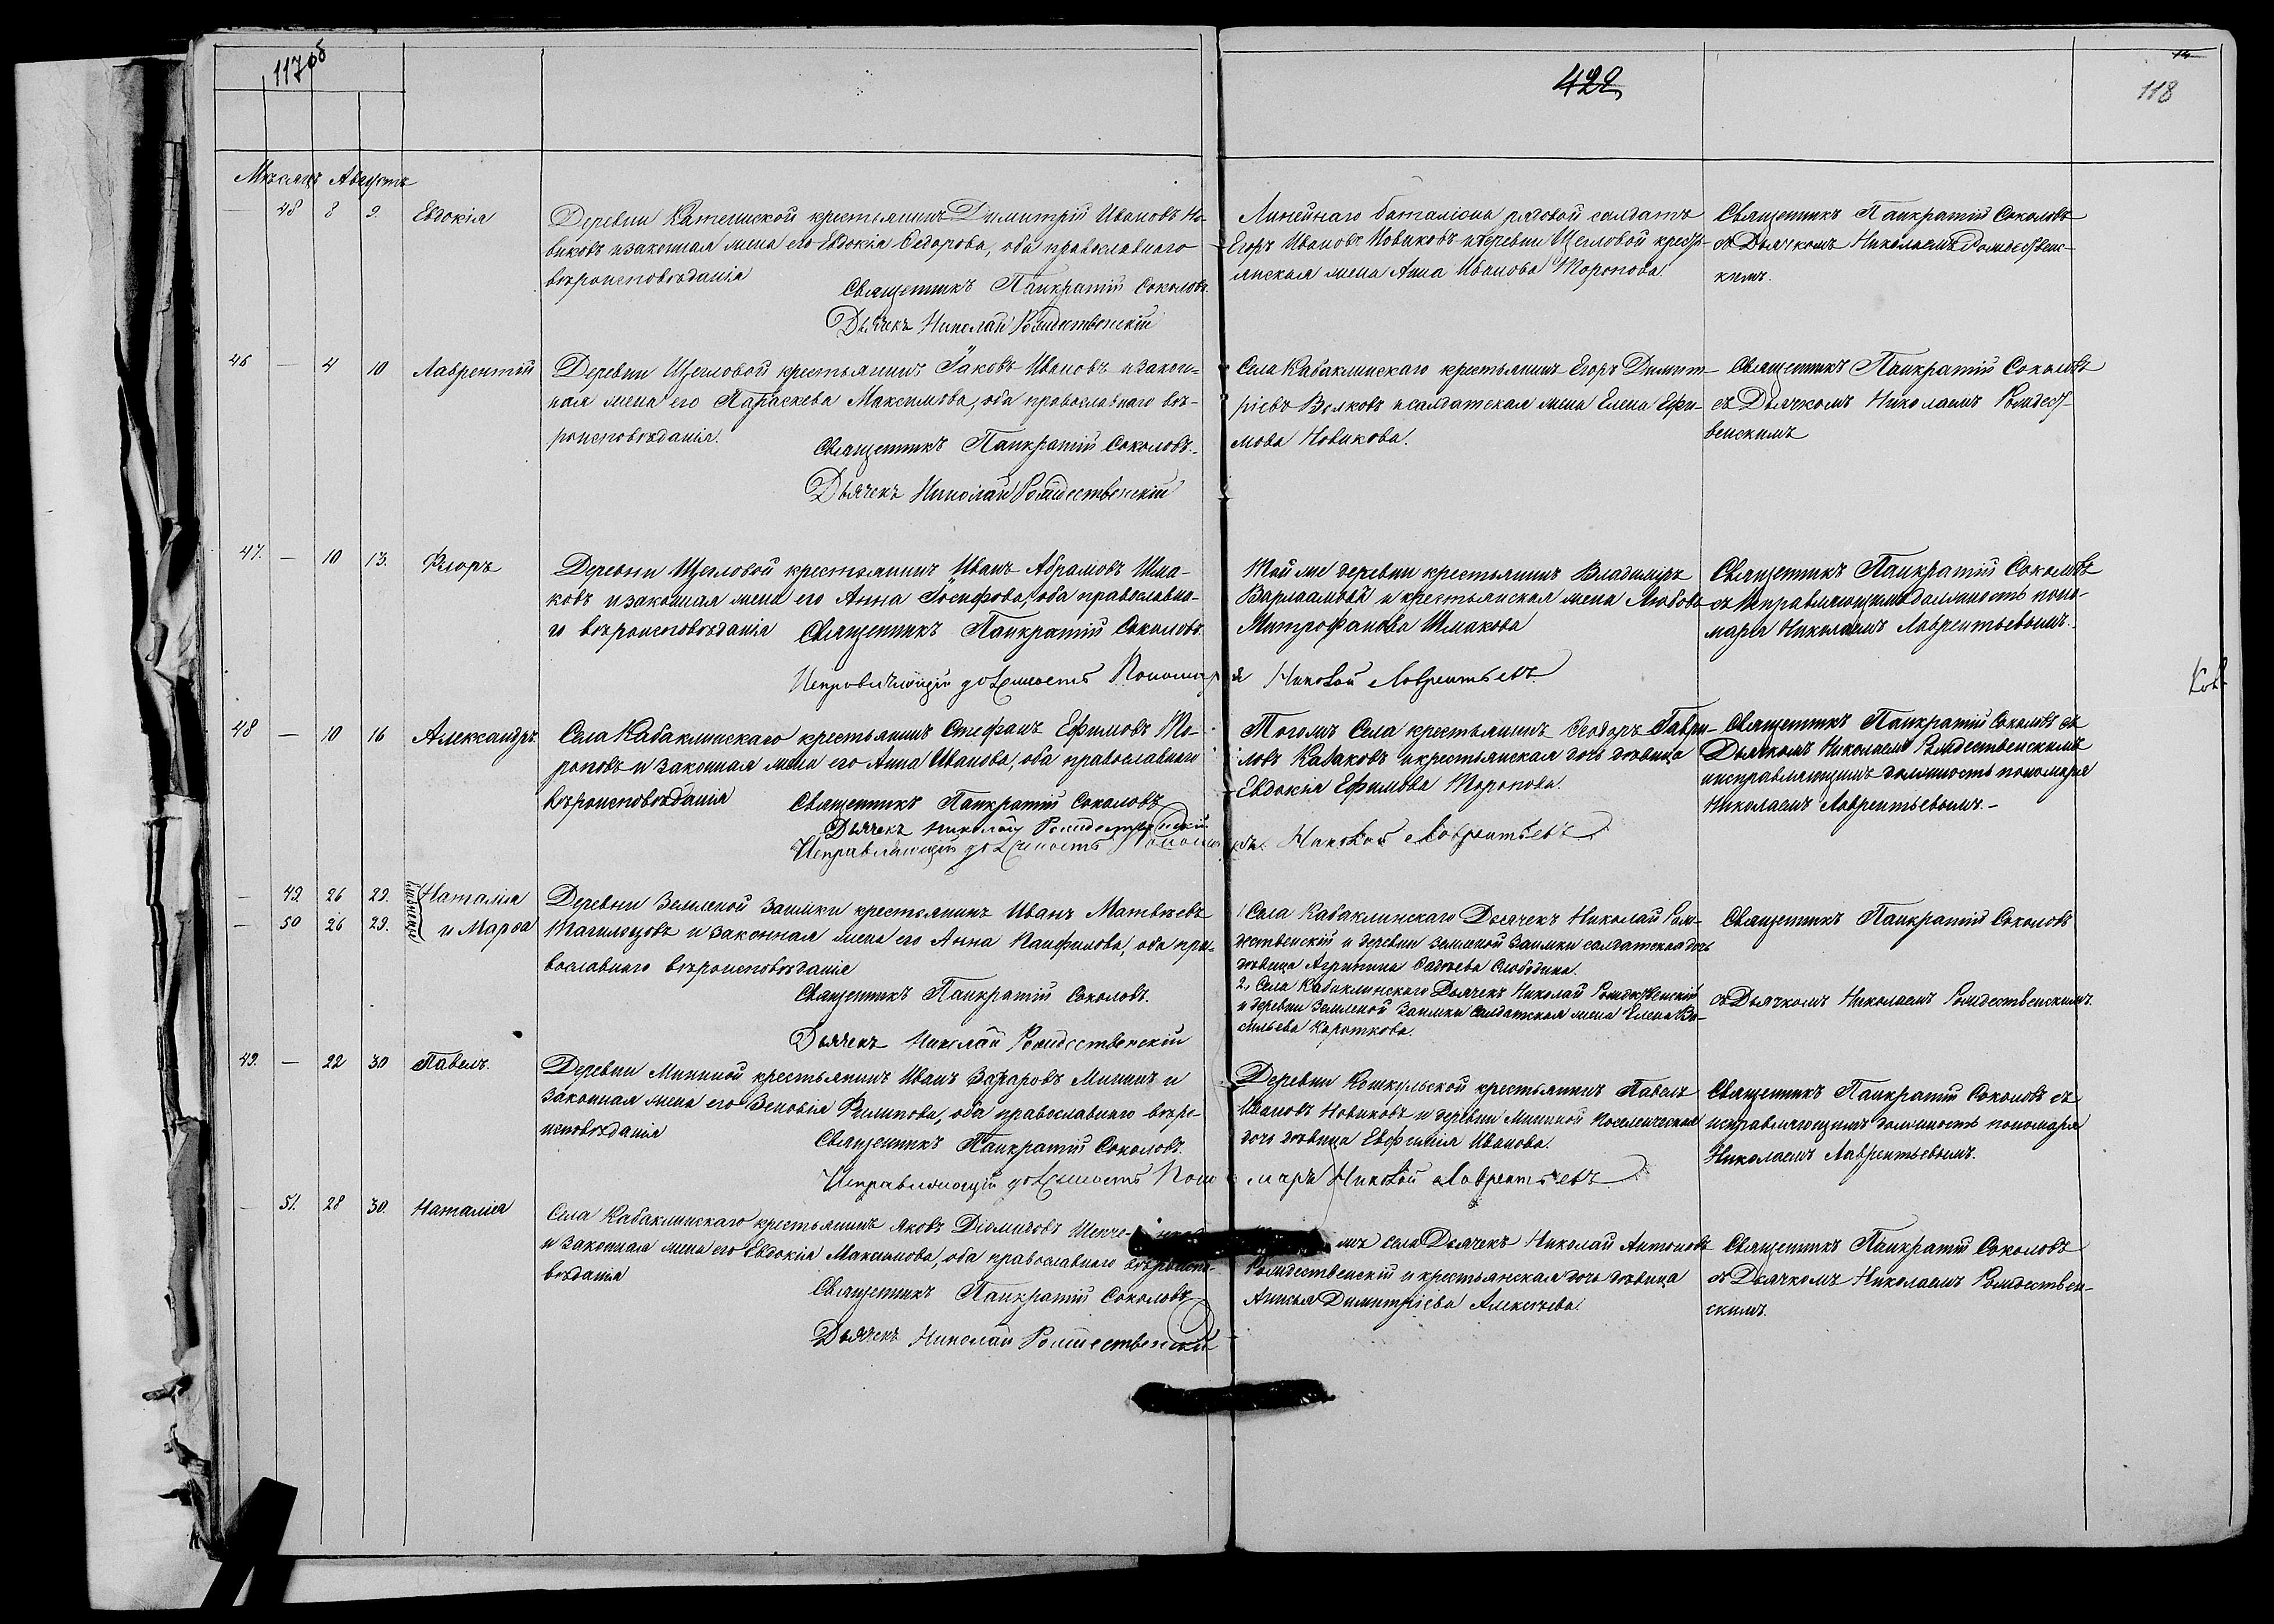 117об
422
118
Мѣсяцъ Августъ
— 48 8 9. Евдокія
Деревни крестьянинъ Димитрій Ивановъ Но-
виковъ и законная жена его Евдокія Ѳедорова, оба православнаго
вѣроисповѣданія
Священникъ Панкратій Соколовъ.
Дьячекъ Николай Рождественскій
Линейнаго баталіона рядовой солдатъ
Егоръ Ивановъ Новиковъ и деревни Щегловой кресть-
янская жена Анна Иванова Торопова.
Священникъ Панкратій Соколовъ
съ Дьячкомъ Николаемъ Рождественс-
кимъ.
46 — 4 10 Лаврентій
Деревни Щегловой крестьянинъ Іаковъ Ивановъ и закон-
ная жена его Параскева Максимова, оба православнаго вѣ-
роисповѣданія.
Священникъ Панкратій Соколовъ.
Дьячекъ Николай Рождественскій
Села Кабаклинскаго крестьянинъ Егоръ Димит-
ріевъ Волковъ и солдатская жена Елена Ефи-
мова Новикова.
Священникъ Панкратій Соколовъ
съ Дьячкомъ Николаемъ Рождест-
венскимъ
47. — 10 13. Флоръ
Деревни Щегловой крестьянинъ Иванъ Абрамовъ Шма-
ковъ и законная жена его Анна Іосифова, оба православна-
го вѣроисповѣданія Священникъ Панкратій Соколовъ.
Исправляющій должность Пономаря Николай Лаврентьевъ
Той же деревни крестьянинъ Владиміръ
Варлаамовъ и крестьянская жена Любовь
Митрофанова Шмакова
Священникъ Панкратій Соколовъ
съ исправляющимъ должность поно-
маря Николаемъ Лаврентьевымъ.
48 — 10 16 Александръ.
Села Кабаклинскаго крестьянинъ Стефанъ Ефимовъ То-
роповъ и законная жена его Анна Иванова, оба православнаго
вѣроисповѣданія Священникъ Панкратій Соколовъ
Дьячекъ Николай Рождественскій
Исправляющій должность Николай Лаврентьевъ
Тогожъ Села крестьянинъ Ѳеодоръ Гаври-
ловъ Казаковъ и крестьянская дочь дѣвица
Евдокія Ефимова Торопова.
Священникъ Панкратій Соколовъ съ
Дьячкомъ Николаемъ Рождественскимъ
и исправляющимъ должность пономаря
Николаемъ Лаврентьевымъ.-
— 49. 26 29. близнецы Наталія
— 50 26 29. и Марѳа
Деревни Земляной Заимки крестьянинъ Иванъ Матвѣевъ
и законная жена его Анна Панфилова, оба пра-
вославнаго вѣроисповѣданія
Священникъ Панкратій Соколовъ.
Дьячекъ Николай Рождественскій
1 Села Кабаклинскаго Дьячекъ Николай Рож-
дественскій и деревни Земляной Заимки солдатская дочь
дѣвица Агрипина Слободина.
2, Села Кабаклинскаго Дьячекъ Николай Рождественскій
и деревни Земляной Заимки Солдатская жена Елена Ва-
сильева Короткова.
Священникъ Панкратій Соколовъ
съ Дьячкомъ Николаемъ Рождественскимъ.
49. — 22 30 Павелъ.
Деревни Мининой крестьянинъ Иванъ Захаровъ Мининъ и
законная жена его Зеновія Филипова, оба православнаго вѣро-
исповѣданія
Священникъ Панкратій Соколовъ.
Исправляющій должность Пономарь Николай Лаврентьевъ
Деревни Кошкульской крестьянинъ Павелъ
Ивановъ Новиковъ и деревни Мининой поселенческая
дочь дѣвица Евфимія Иванова.
Священникъ Панкратій Соколовъ съ
исправляющимъ должность пономаря
Николаемъ Лаврентьевымъ.
— 51. 28 30. Наталія
Села Кабаклинскаго крестьянинъ Яковъ Діомидовъ
и законная жена его Евдокія Максимова, оба православнаго вѣроиспо-
вѣданія
Священникъ Панкратій Соколовъ
Дьячекъ Николай Рождественскій
жъ села Дьячекъ Николай Антоновъ
Рождественскій и крестьянская дочь дѣвица
Анисья Димитріева Алексѣева.
Священникъ Панкратій Соколовъ
съ Дьячкомъ Николаемъ Рождествен-
скимъ.